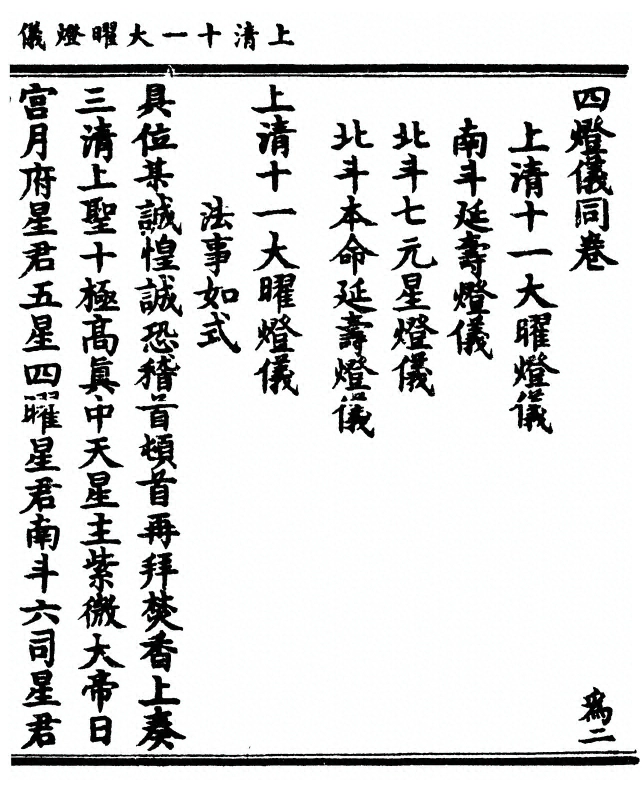 上清十一大曜燈儀
四燈儀同卷
為二
上清十一大曜燈儀
南斗延壽燈儀
北斗七元星燈儀
北斗本命延壽燈儀
上清十一大曜燈儀
法事如式
具位某誠惶誠恐稽首頓首再拜焚香上奏
三清上聖十極高眞中天星主紫微大帝日
宮月府星君五星四曜星君南斗六司星君